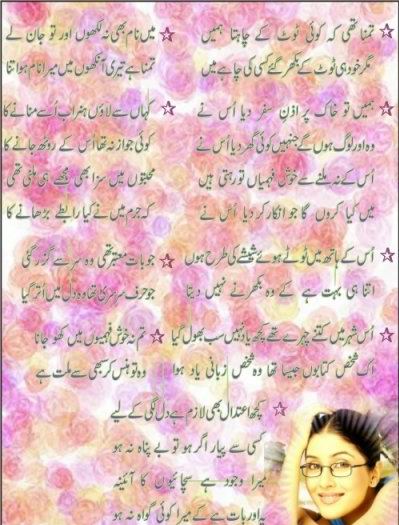 تمنا تھی کہ کوئی ٹوٹ کے چاہتا ہمیں
مگر خود ہی ٹوٹ کے بکھر گئے کسی کی چاہ میں
میں نام بھی نہ لکھوں اور تو جان لے
تمنا ہے تیری آنکھوں میں میرا نام ہو اتنا
ہمیں تو خاک پر اذنِ سفر دیا اُس نے
وہ اور لوگ ہوں گے جنہیں کوئی گھر دیا اُس نے
اُس کے نہ ملنے سے خوش فہمیاں تو رہتی ہیں
میں کیا کروں گا جو انکار کر دیا اُس نے
کہاں سے لاؤں ہنر اب اُسے منانے کا
کوئی جواز نہ تھا اُس کے روٹھ جانے کا
محبتوں میں سزا بھی مجھے ہی ملنی تھی
کہ جرم میں نے کیا رابطے بڑھانے کا
اُس کے ہاتھ میں ٹوٹے ہوئے شیشے کی طرح ہوں
اتنا ہی بہت ہے کے وہ بکھرنے نہیں دیتا
جو بات معتبر تھی وہ سر سے گزر گئی
جو حرف سرسری تھا وہ دل میں اُتر گیا
اُس شہر میں کتنے چہرے تھے کچھ یاد نہیں سب بھول گیا
اک شخص کتابوں جیسا تھا وہ شخص زبانی یاد ہوا
تم نہ خوش فہمیوں میں کھو جانا
وہ تو ہنس کر سبھی سے ملت ہے
کچھ اعتدال بھی لازم ہے دل لگی کے لیے
کسی سے پیار اگر ہو تو بے پناہ نہ ہو
میرا وجود ہے سچائیوں کا آئینہ
یہ اور بات ہے کے میرا کوئی گواہ نہ ہو